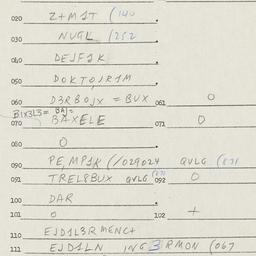 020 Z+M1T (140 .
030 NUGL (252 .
040 DEJF1K .
050 DOKTOJR1M .
060 D3RBOJX = BUX 061 O
B1X3L3= BAJ=
070 BAXELE 071 O
080 O .
090 PE,MP1K (/029024 QVLG (871
091 TREL8BUX QVLG (871 092 O
100 DAR .
101 O 102 +
110 EJD1L3RMENC+
111 EJD1LN ING3RMON (067